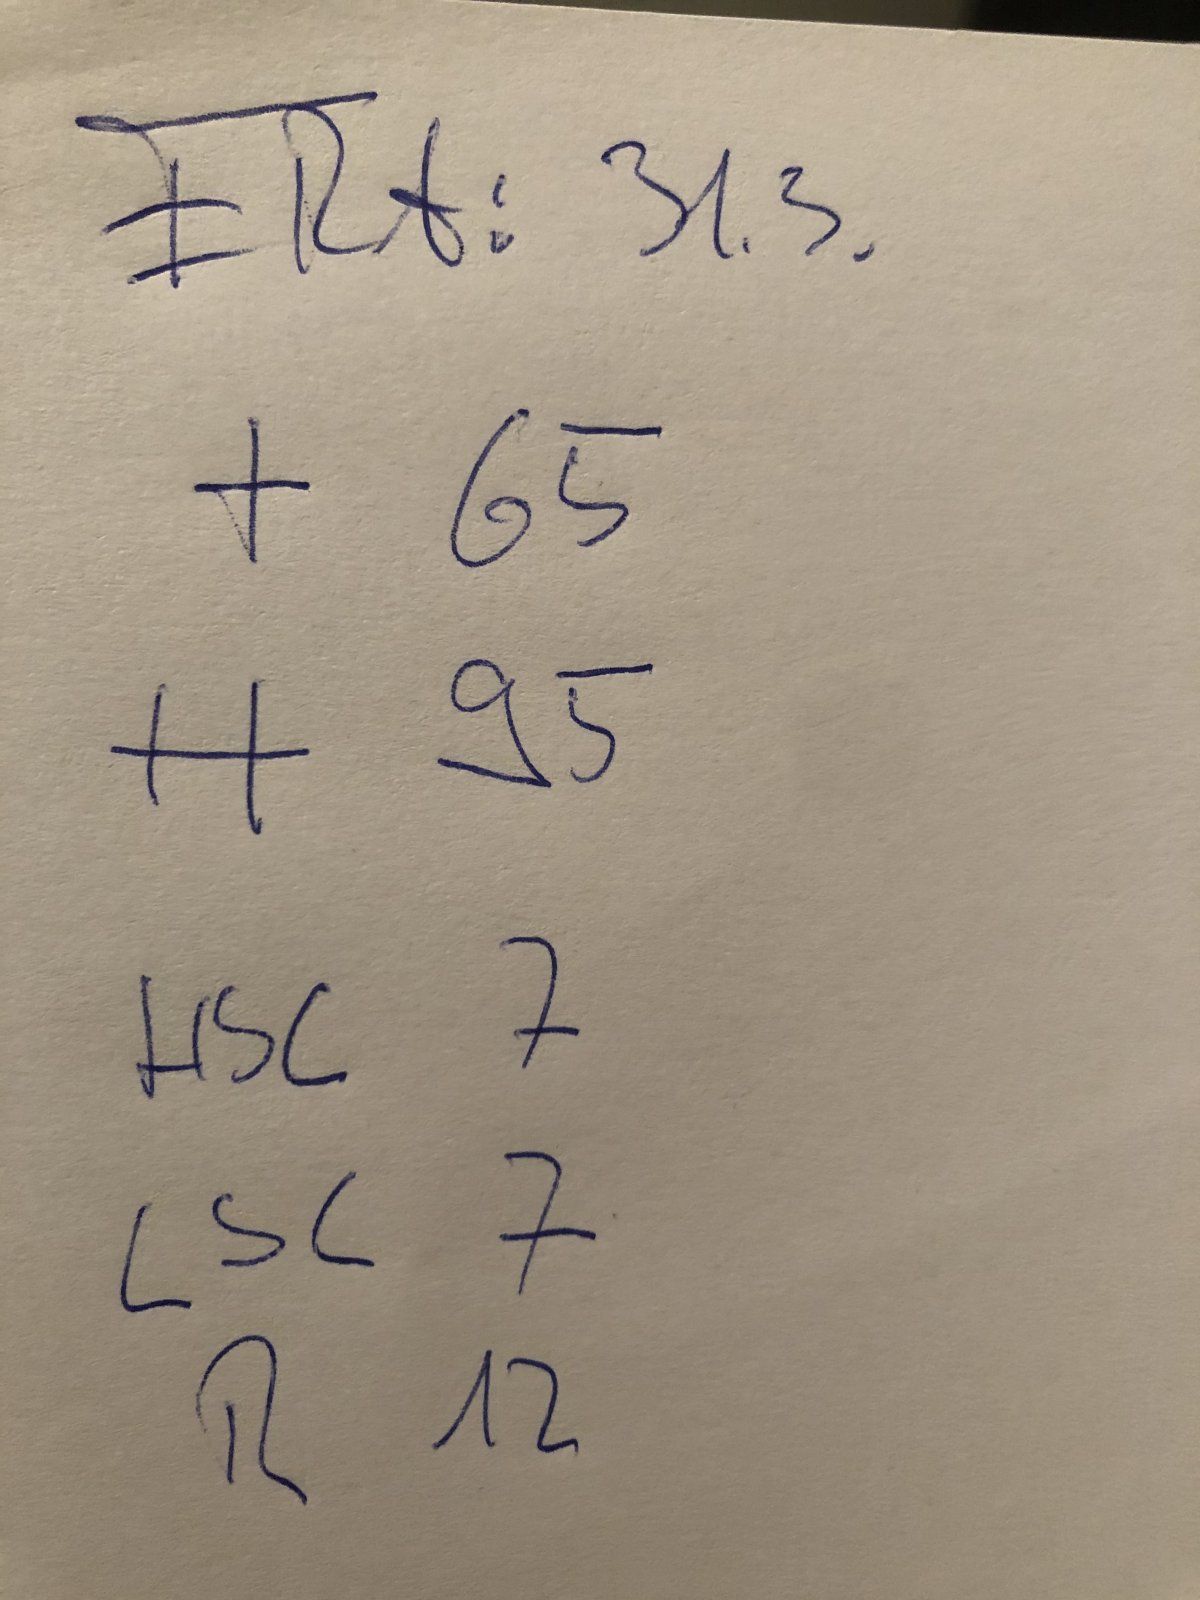 FRA: 31.3.
+ 65
++ 95
HSC 7
LSC 7
R 12